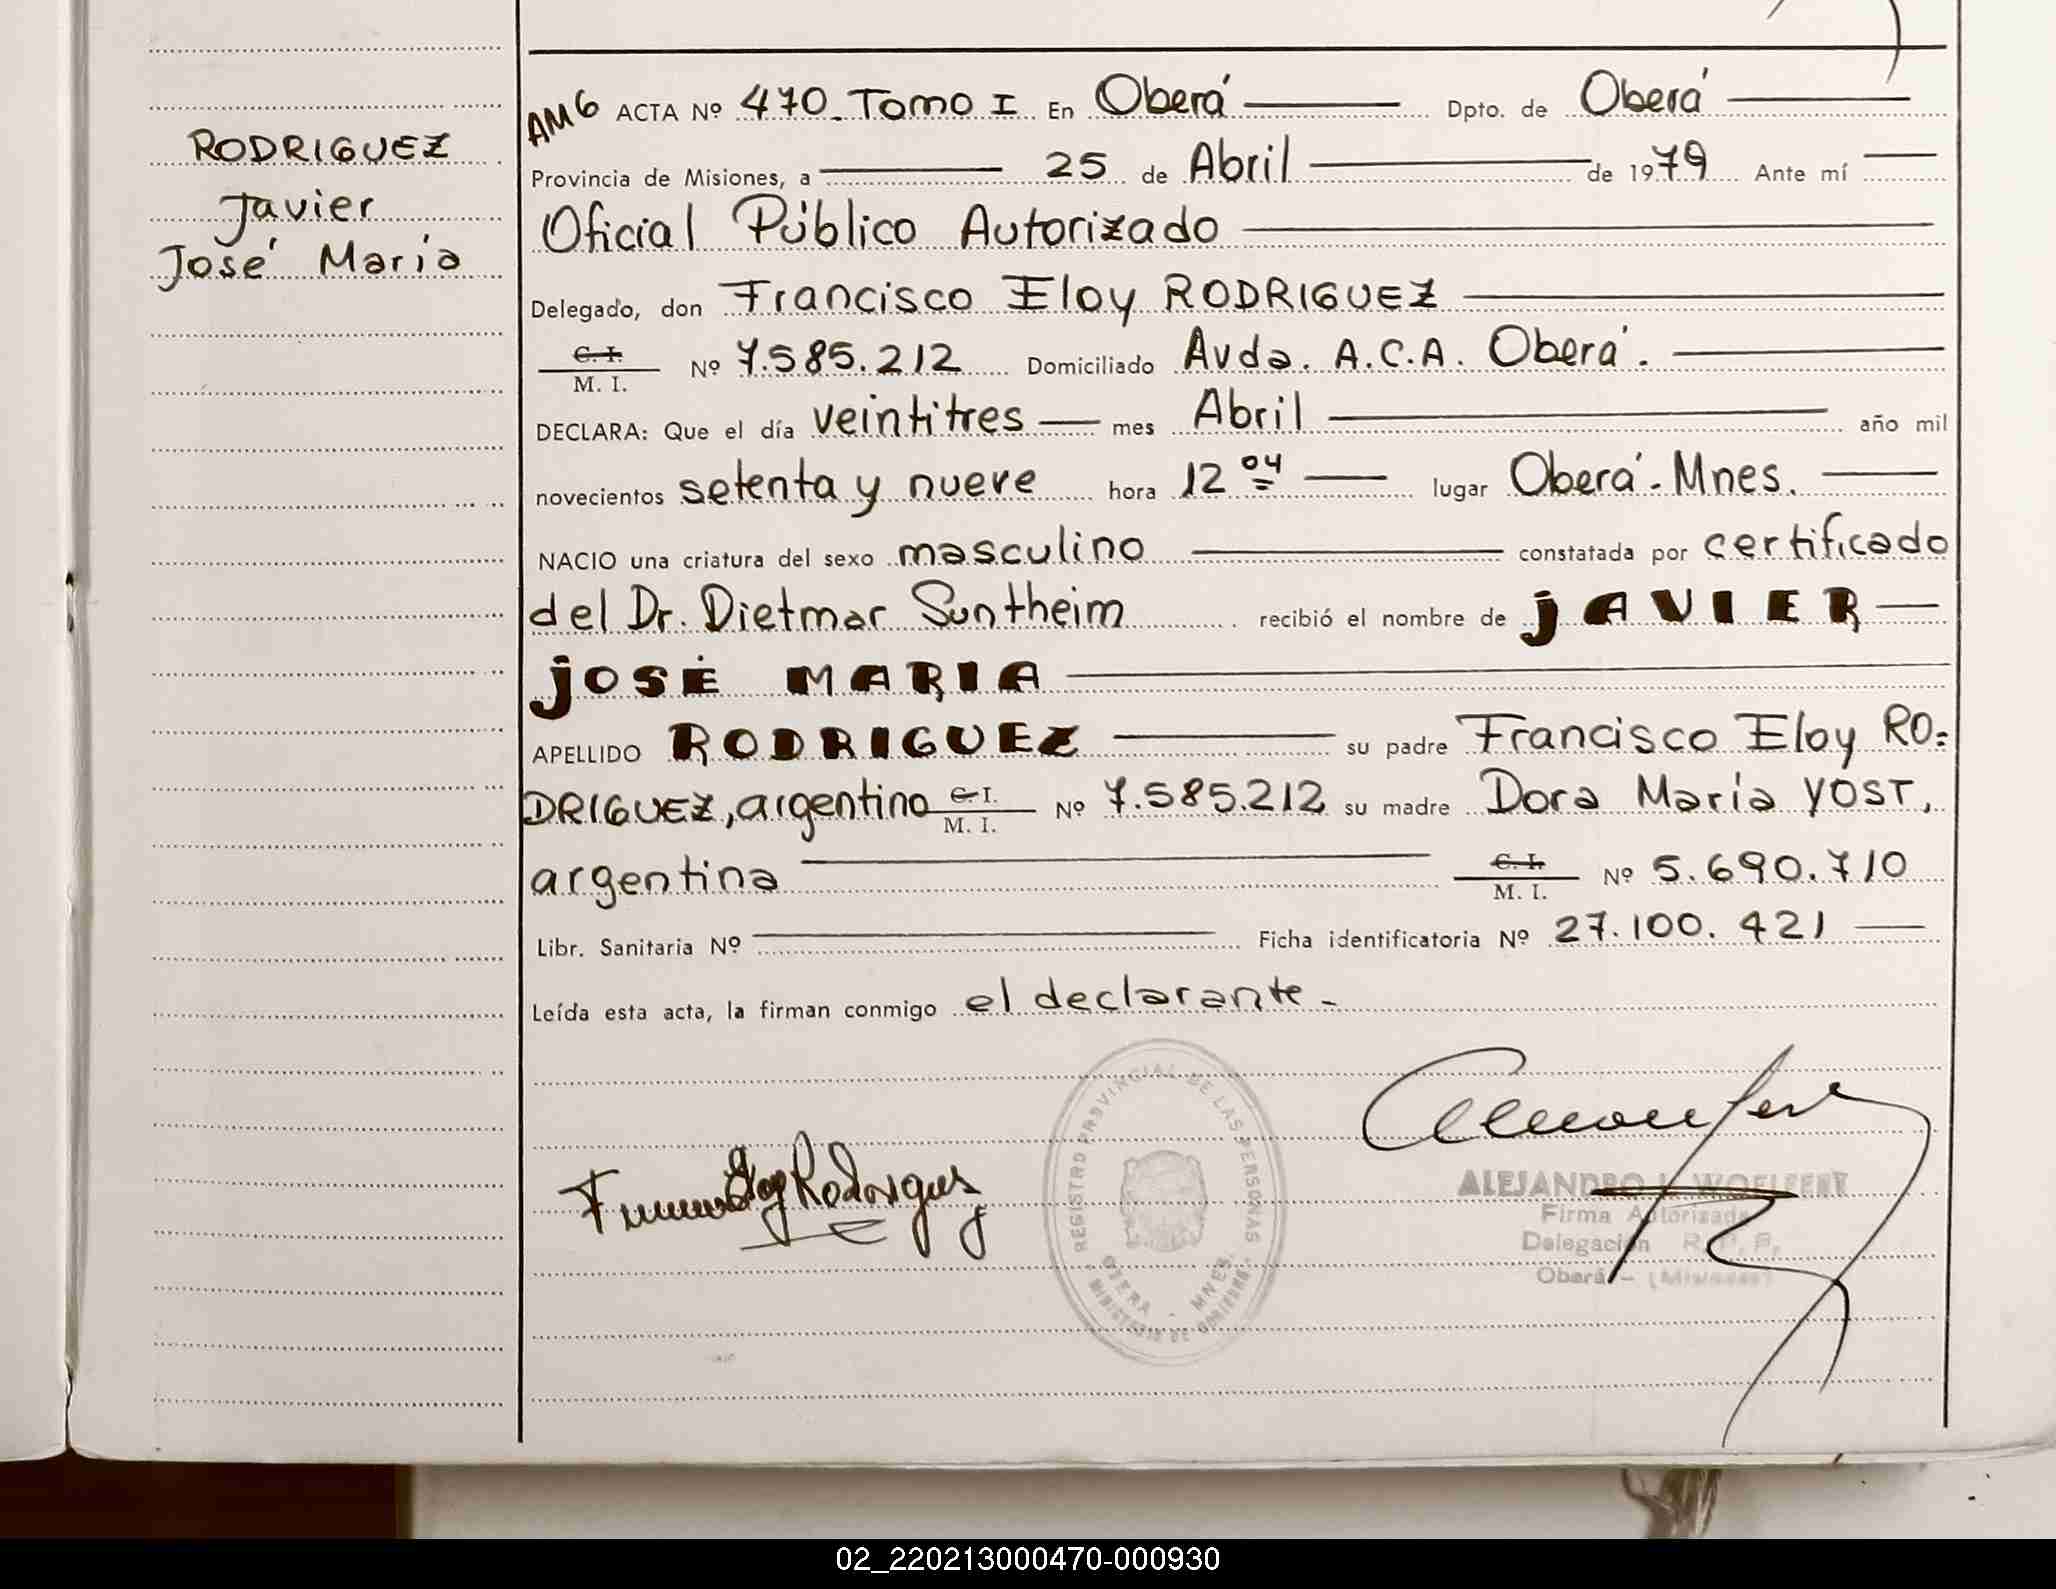 RODRIGUEZ
Javier
José María
AM6 ACTA Nº 470. Tomo I En Oberá Dpto. de Oberá
Provincia de Misiones, a 25 de Abril de 1979 Ante mí
Oficial Público Autorizado
Delegado, don Francisco Eloy RODRIGUEZ
C. I.
M. I. Nº 7.585.212 Domiciliado Avda. A.C.A. Oberá.
DECLARA: Que el día veintitres mes Abril año mil
novecientos setenta y nueve hora 12 04 lugar Oberá - Mnes.
NACIO una criatura del sexo masculino constatada por certificado
del Dr. Dietmar Suntheim recibió el nombre de JAVIER
JOSÉ MARIA
APELLIDO RODRIGUEZ su padre Francisco Eloy RO=
DRIGUEZ, argentino C. I. / M. I. Nº 7.585.212 su madre Dora María YOST,
argentina C. I. / M. I. Nº 5.690.710
Libr. Sanitaria Nº Ficha identificatoria Nº 27.100.421
Leída esta acta, la firman conmigo el declarante.-
REGISTRO PROVINCIAL DE LAS PERSONAS
OBERA - MNES.
MINISTERIO DE GOBIERNO
Eloy Rodriguez
ALEJANDRO WOELFERT
Firma Autorizada
Delegación R. P. P.
Oberá - (Misiones)
02_220213000470-000930